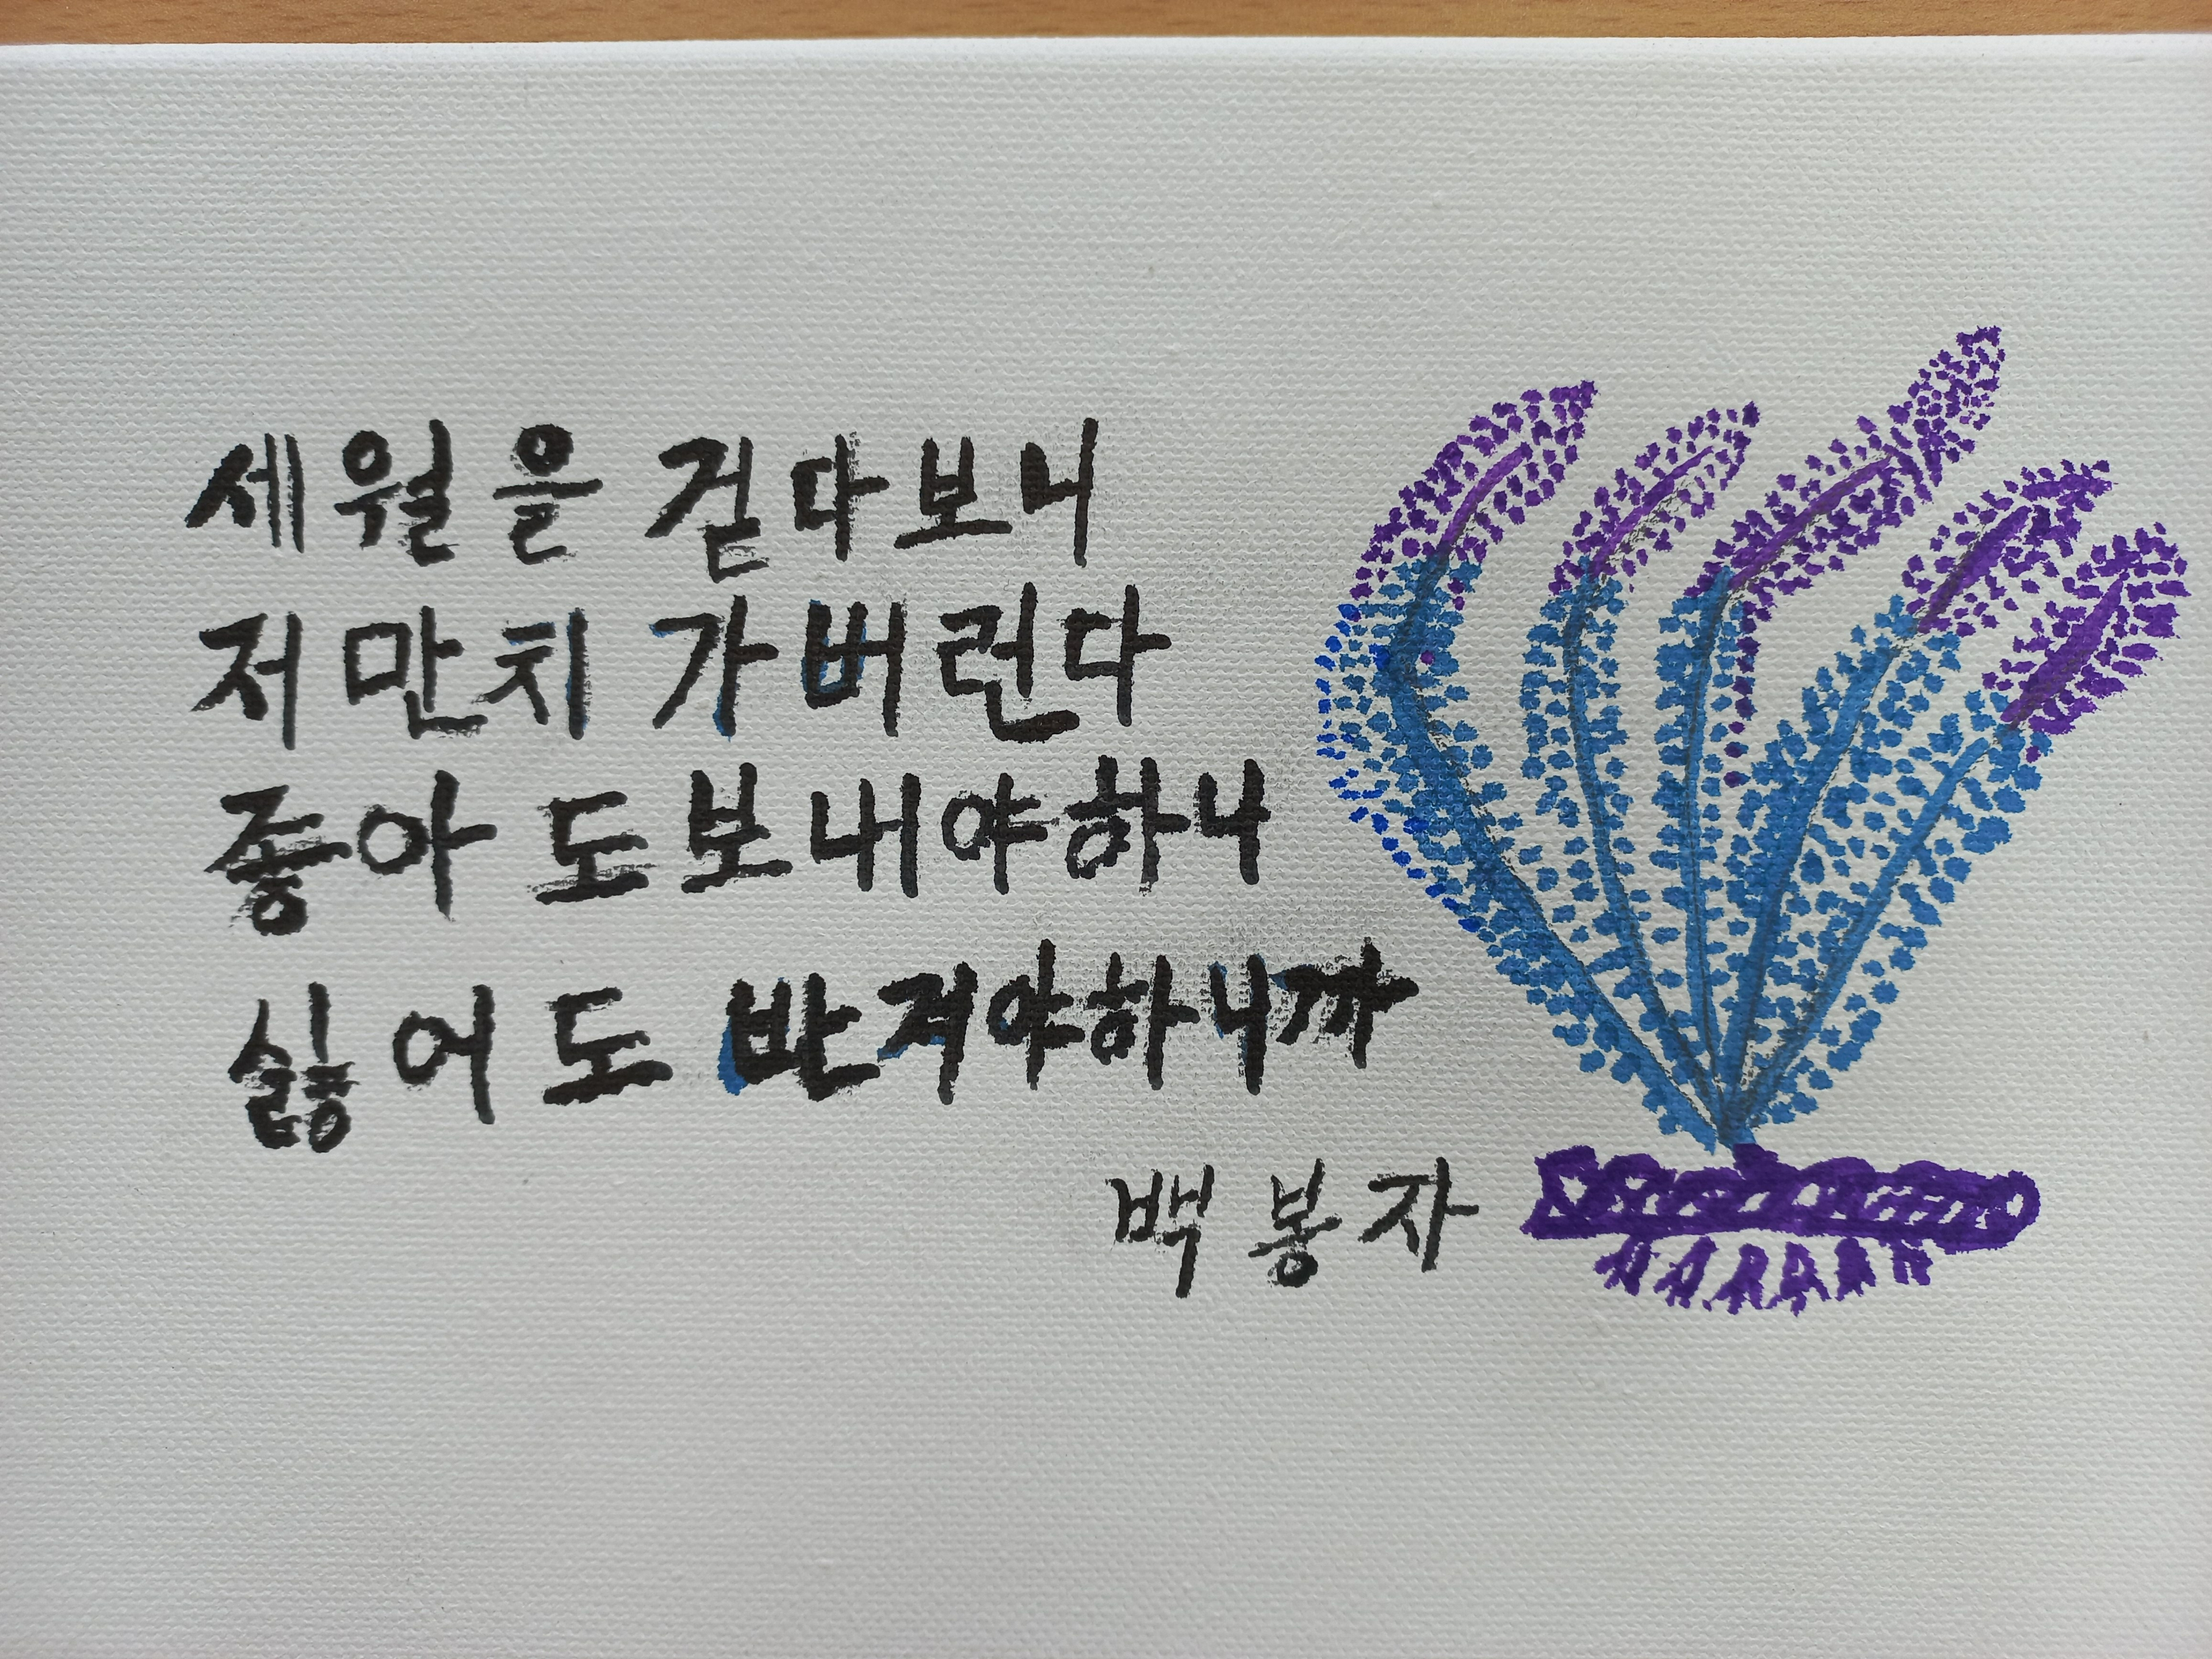 세월을 걷다보니
저만치 가버린다
좋아도보내야하나
싫어도 반겨야하니까
백봉자